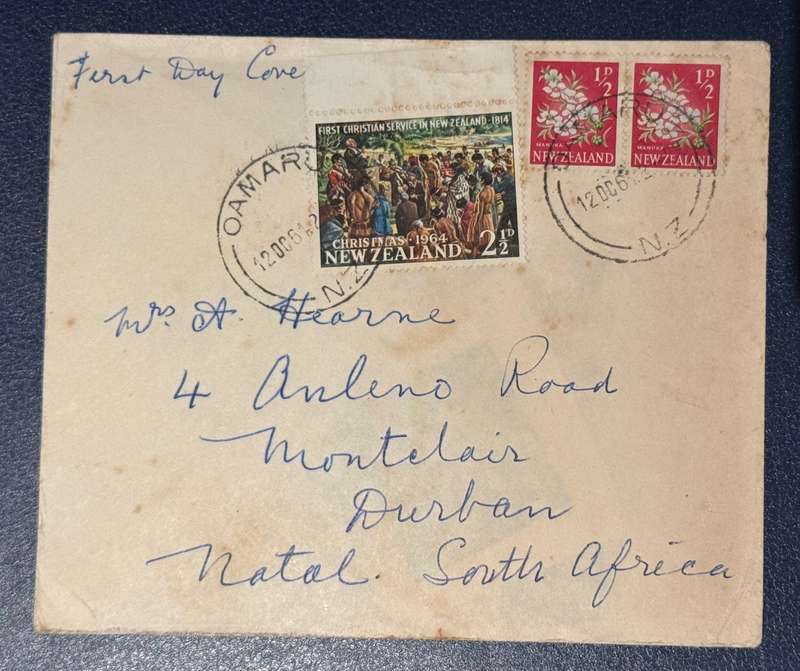 First Day Cove
FIRST CHRISTIAN SERVICE IN NEW ZEALAND · 1814
CHRISTMAS · 1964
NEW ZEALAND 2½D
½D
MANUKA
NEW ZEALAND
½D
MANUKA
NEW ZEALAND
OAMARU
12 OC 64
N.Z
OAMARU
12 OC 64
N.Z
Mrs A. Hearne
4 Anleno Road
Montclair
Durban
Natal. South Africa